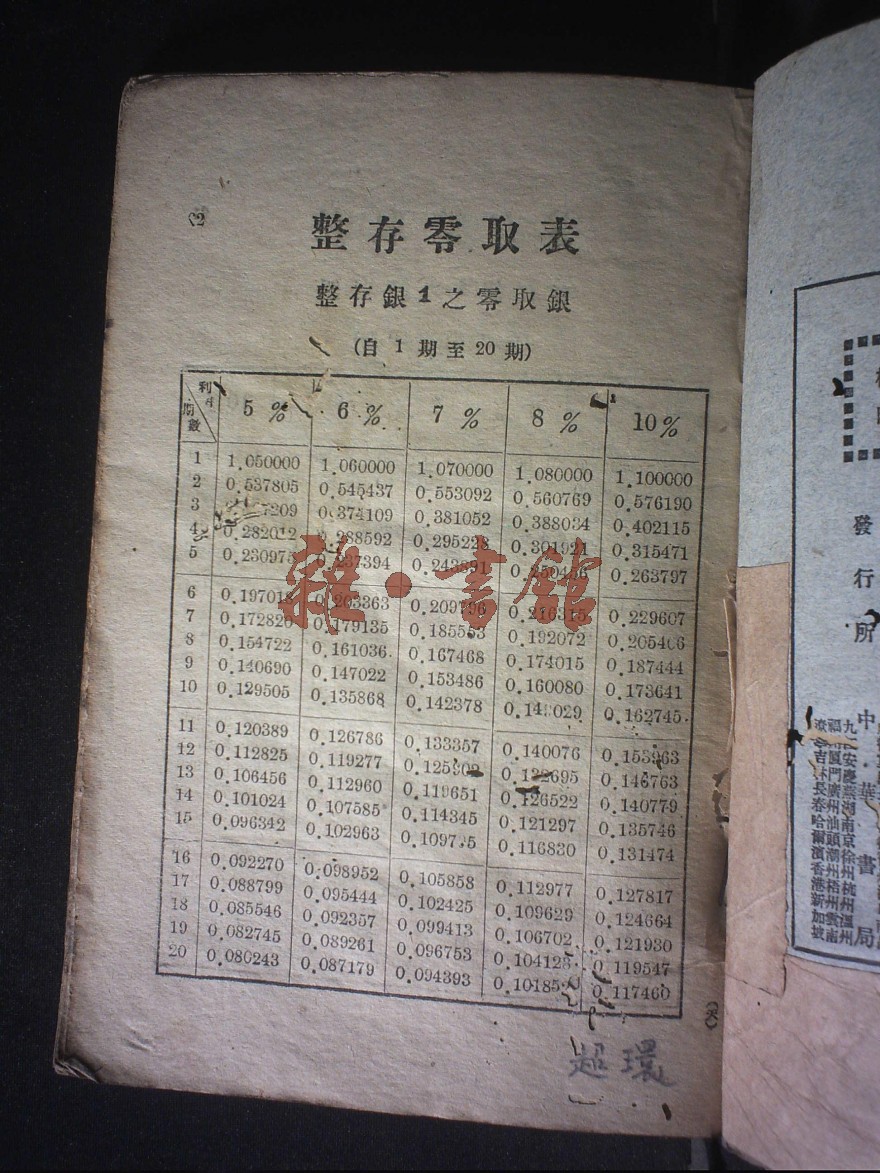 整存零取表
整存銀1之零取銀
(自 1 期至 20 期)
利 期數 5 % 6 % 7 % 8 % 10%
1 1.050000 1.060000 1.070000 1.080000 1.100000
2 0.537805 0.545437 0.553092 0.560769 0.576190
3 7209 0.374109 0.381052 0.388034 0.402115
4 0.282012 0.288592 0.295228 0.301921 0.315471
5 0.230975 0.237394 0.243891 0.263797
6 0.197018 0.203363 0.209796 0.216315 0.229607
7 0.172820 0.179135 0.185553 0.192072 0.205406
8 0.154722 0.161036 0.167468 0.174015 0.187444
9 0.140690 0.147022 0.153486 0.160080 0.173641
10 0.129505 0.135868 0.142378 0.162745
11 0.120389 0.126786 0.133357 0.140076 0.153963
12 0.112825 0.119277 0.146763
13 0.106456 0.112960 0.119651 0.126522 0.140779
14 0.101024 0.107585 0.114345 0.121297 0.135746
15 0.096342 0.102963 0.116830 0.131474
16 0.092270 0.098952 0.105858 0.112977 0.127817
17 0.088799 0.095444 0.102425 0.109629 0.124664
18 0.085546 0.092357 0.099413 0.106702 0.121930
19 0.082745 0.089261 0.096753 0.104128 0.119547
20 0.080243 0.087179 0.094393 0.117460
超環
雜·書館
發行所
中華書局